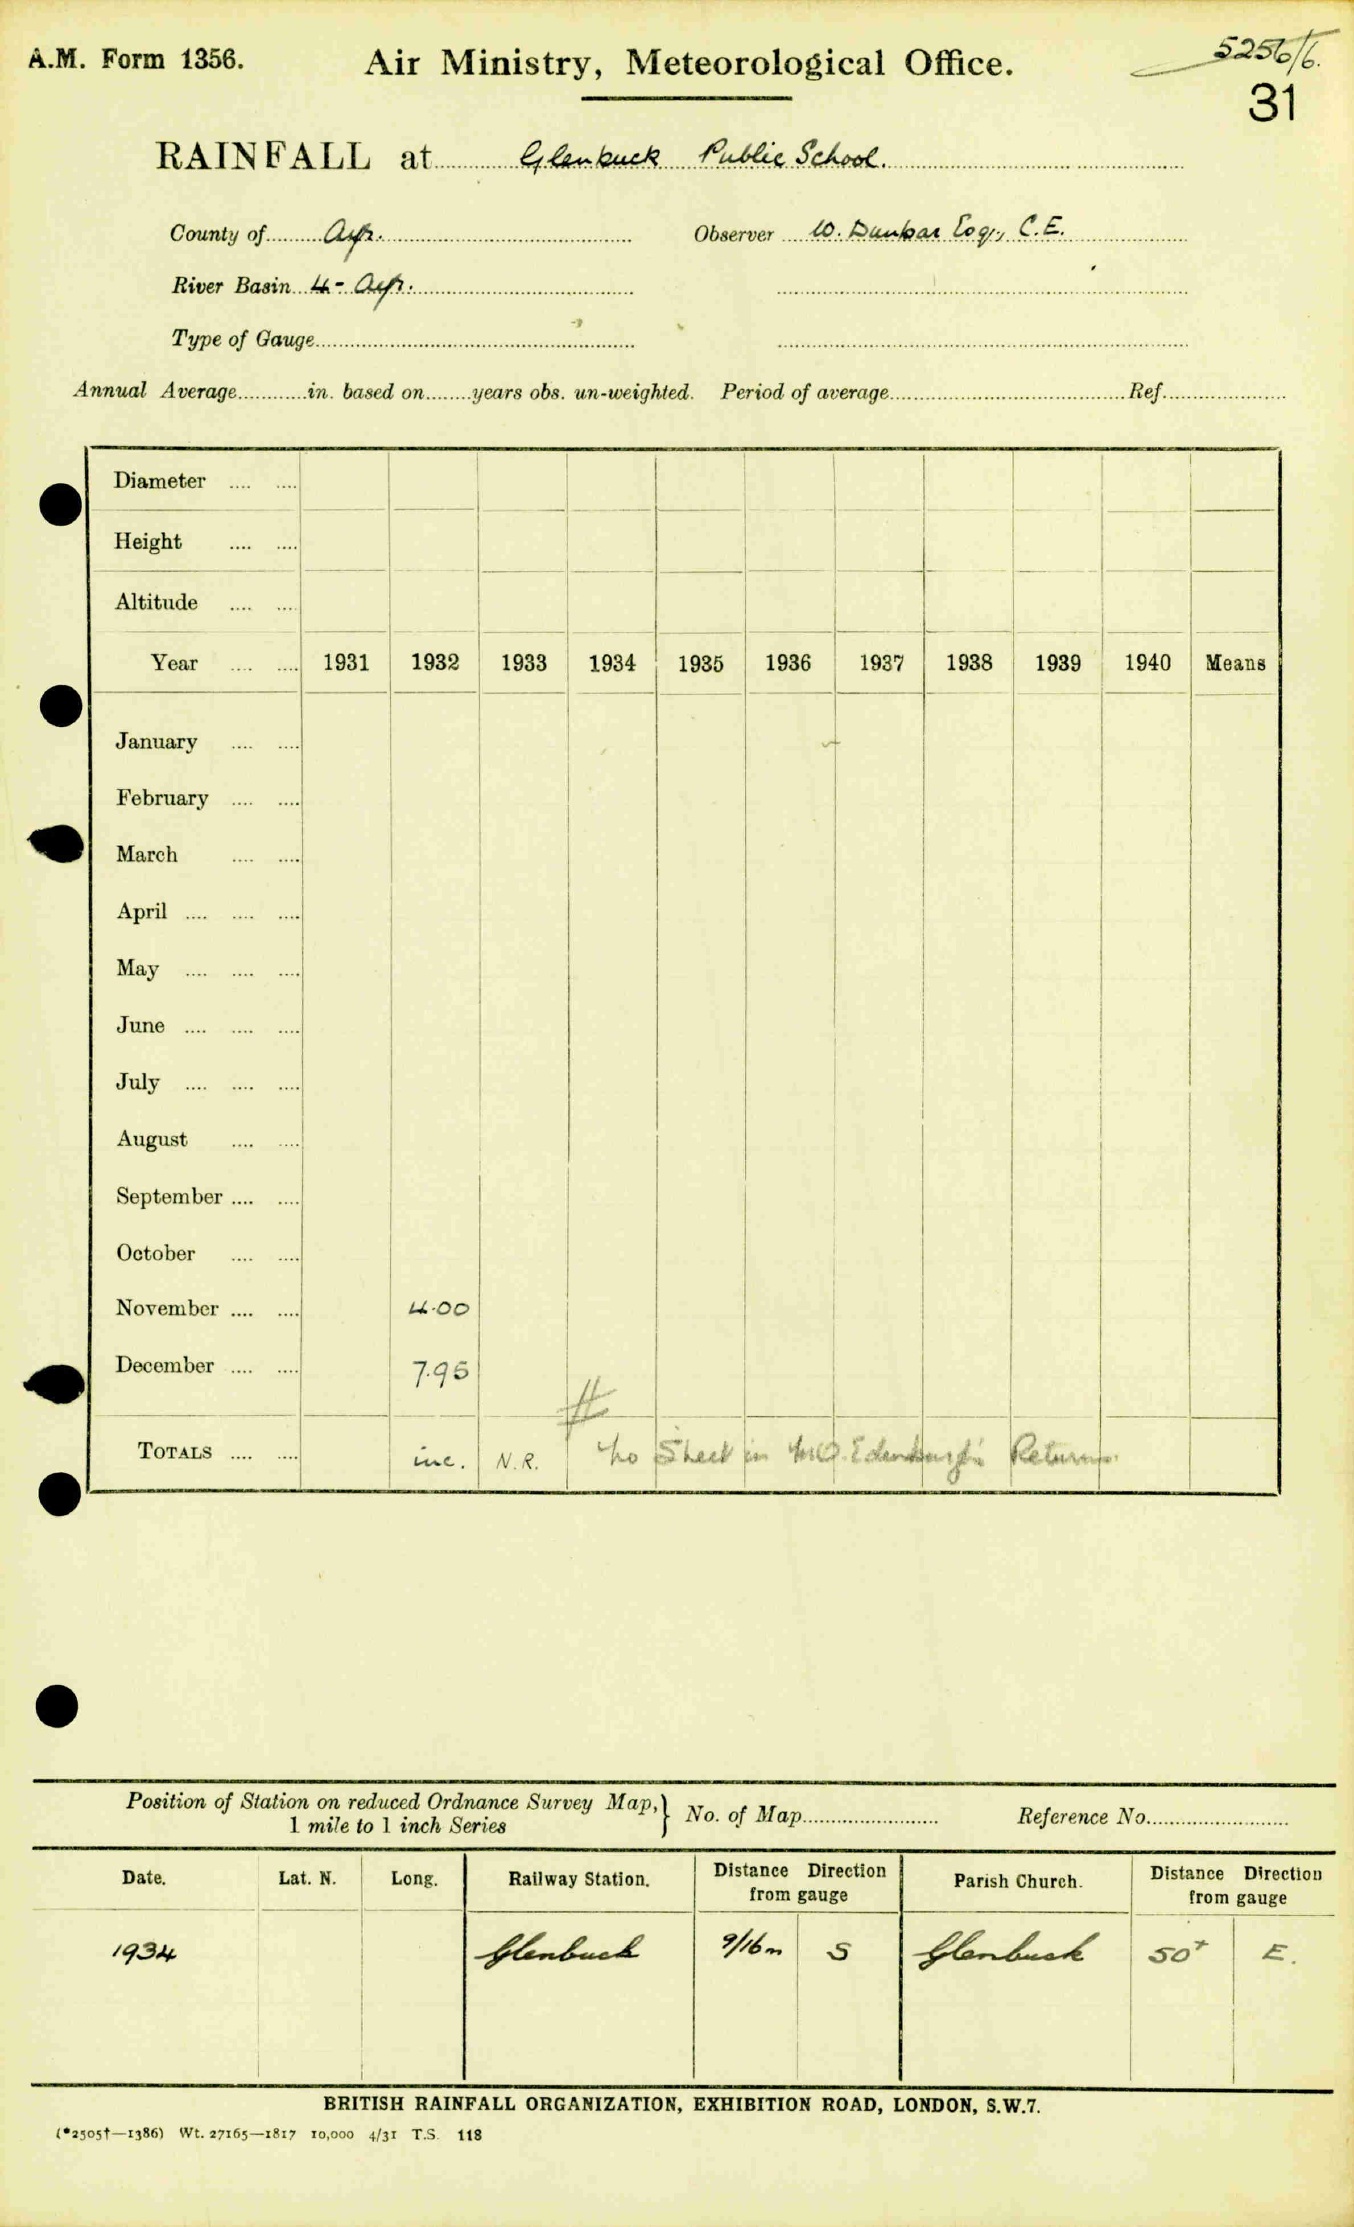 A.M. Form 1356.
Air Ministry, Meteorological Office.
5256/6.
31
RAINFALL at Glenbuck Public School.
County of Ayr. Observer W. Dunbar Esq., C.E.
River Basin 4- Ayr.
Type of Gauge
Annual Average in. based on years obs. un-weighted. Period of average Ref.
Diameter
Height
Altitude
Year 1931 1932 1933 1934 1935 1936 1937 1938 1939 1940 Means
January
February
March
April
May
June
July
August
September
October
November 4.00
December 7.95
#
TOTALS inc. N.R. No Sheet in M.O. Edinburgh's Returns.
Position of Station on reduced Ordnance Survey Map,
1 mile to 1 inch Series } No. of Map Reference No.
Date. Lat. N. Long. Railway Station. Distance Direction from gauge Parish Church. Distance Direction from gauge
1934 Glenbuck 9/16 m S Glenbuck 50+ E.
BRITISH RAINFALL ORGANIZATION, EXHIBITION ROAD, LONDON, S.W.7.
(*2505†—1386) Wt. 27165—1817 10,000 4/31 T.S. 118